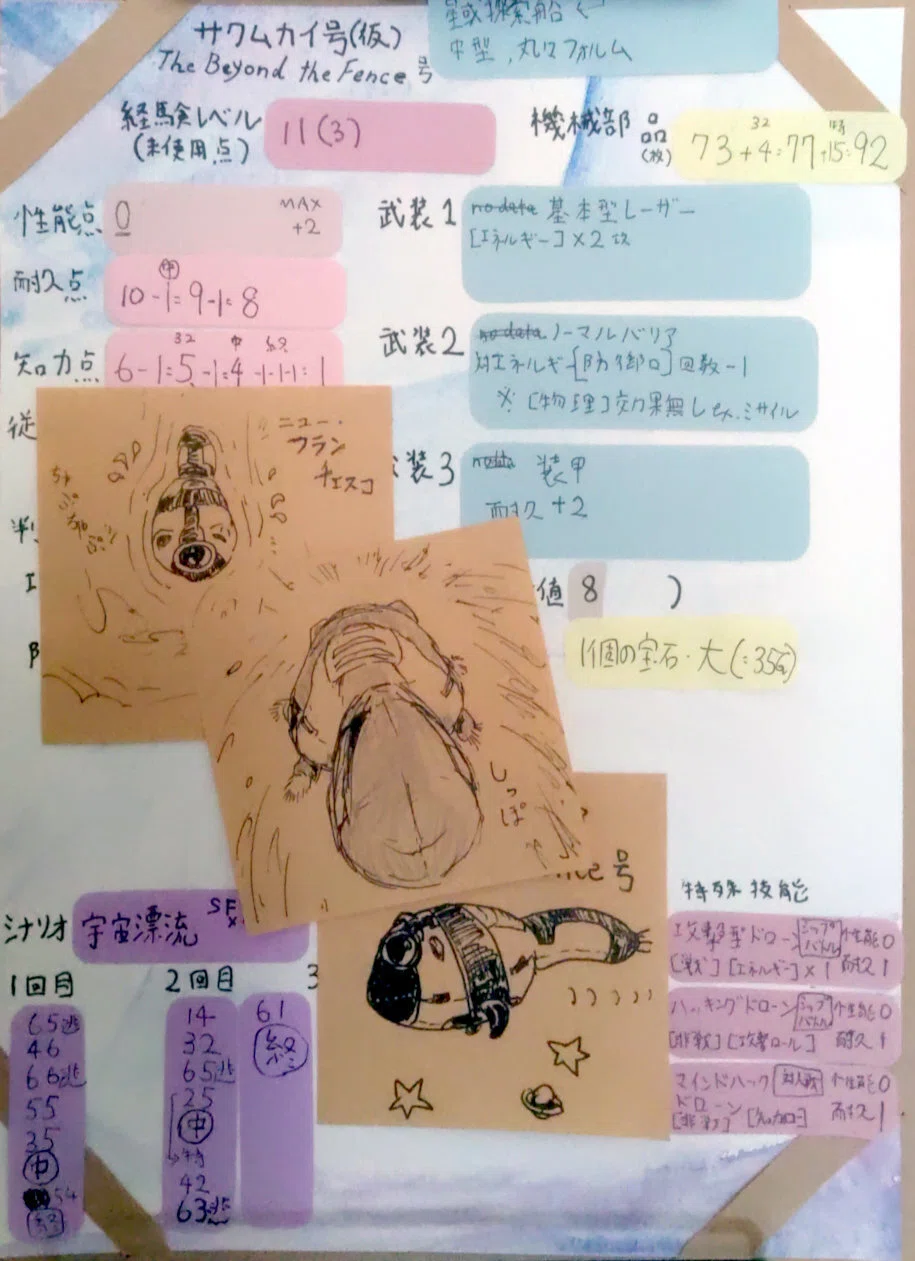 星域探索船
中型、丸いフォルム
サクムカイ号(仮)
The Beyond the Fence 号
経験レベル
(未使用点)
11(3)
機械部品
(枚)
32 特
73+4=77+15=92
性能点
0
MAX
+2
耐久点
中
10-1=9-1=8
知力点
32 中 終
6-1=5-1=4-1-1-1=1
従
武装1
no data 基本型レーザー
[エネルギー]×2
武装2
no data ノーマルバリア
対エネルギー[防御ロ]回数-1
※[物理]効果無し ex.ミサイル
装3
装甲
耐久+2
値 8 )
1個の宝石・大
ニュー・
フラン
チェスコ
しっぽ
号
シナリオ
宇宙漂流
SF
1回目
65逃
46
66逃
55
35
中
54
終
2回目
14
32
65逃
25
中
特
42
63逃
3
61
終
特殊技能
攻撃型ドローン シップバトル 性能0
[戦][エネルギー]×1 耐久1
ハッキングドローン シップバトル 性能0
[非戦][攻撃ロール] 耐久1
マインドハック 対人戦 性能0
ドローン
[非戦] 耐久1